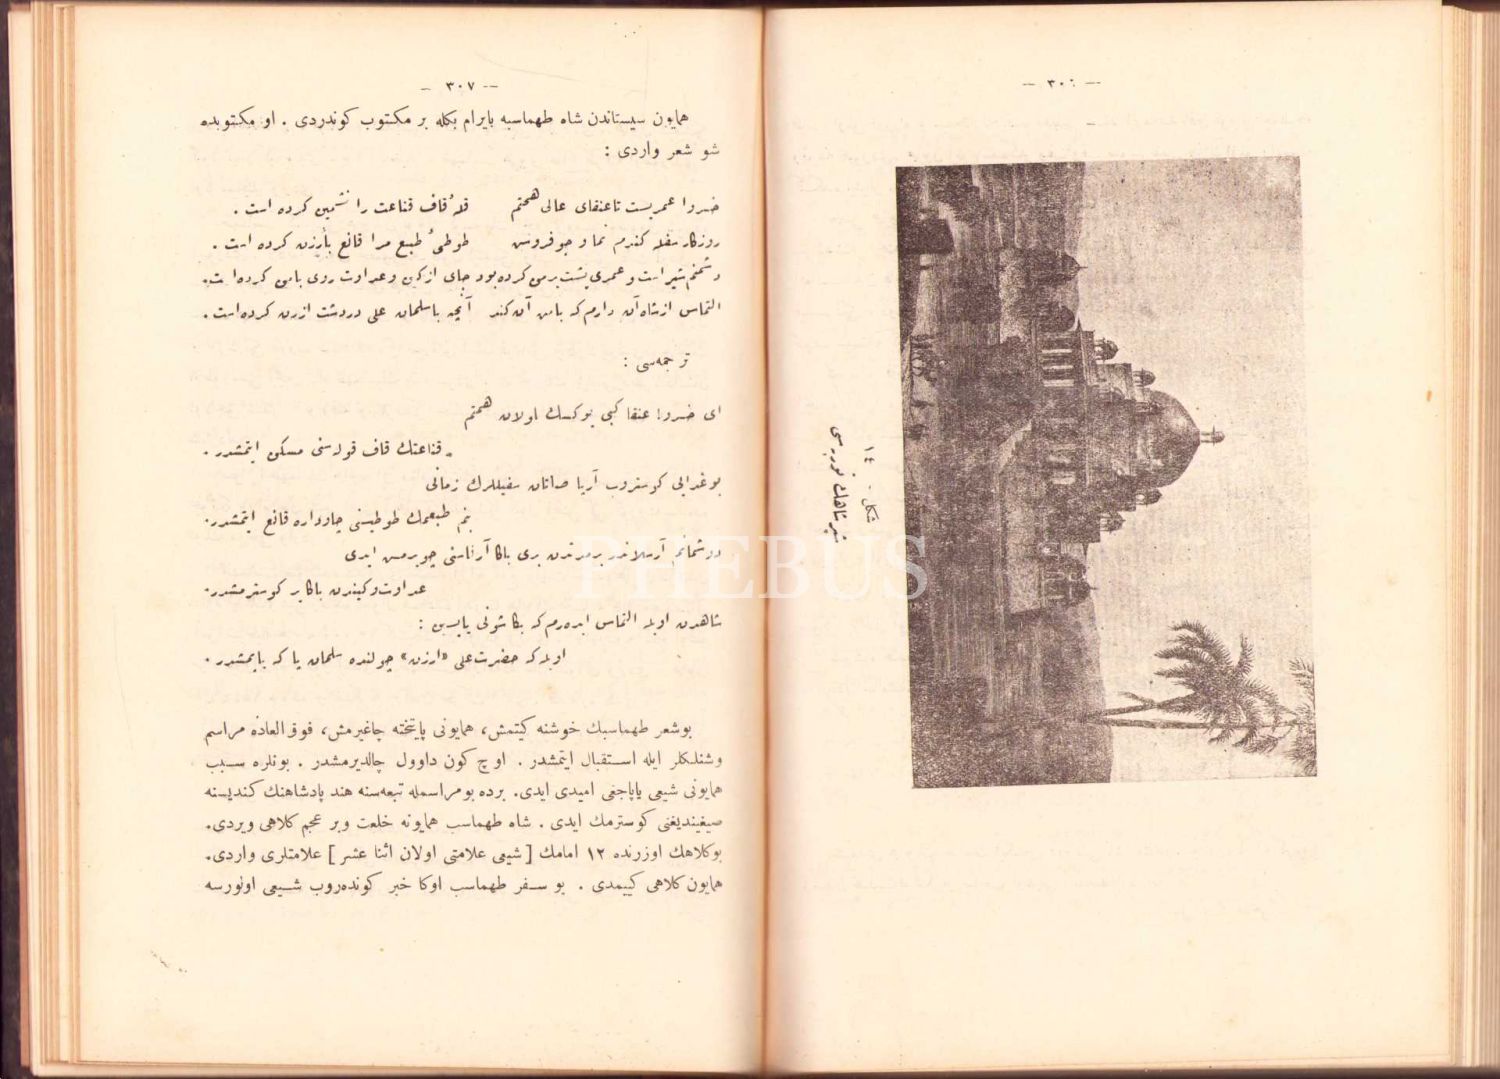 — ٣٠٧ —
همایون سیستاندن شاه طهماسبه بایرام بکله بر مکتوب کوندردی . او مکتوبده
شو شعر واردی :
خسروا عمریست تا عنقای عالی همتم    قلهٔ قاف قناعت را نشمین کرده است .
روزکار سفله کندم نما و جو فروش    طوطیٔ طبع مرا قانع بارزن کرده است .
دشمنم شیر است و عمری پشت بر من کرده بود جای از کین و عداوت روی بامن کرده است .
التماس از شاه آن دارم که بامن آن کند    آنچه با سلمان علی در دشت ارزن کرده است .
ترجمه‌سی :
ای خسرو! عنقا کبی یوکسك اولان همتم
قناعتك قاف قوله‌سنی مسکن ایتمشدر .
بوغدایی کوستروب آرپا صاتان سفیللرك زمانی
بنم طبعمك طوطیسنی چاوداره قانع ایتمشدر .
دوشمانم آرسلاندر بر مدتدن بری باكا آرقاسنی چویرمش ایدی
عداوت وکیندن باكا یر کوسترمشدر .
شاهدن اویله التماس ایده‌رم که بكا شونی یاپسین :
اویله که حضرت علی «ارزن» چولنده سلمان پاکه یاپمشدر .
بو شعر طهماسبك خوشنه کیتمش، همایونی پایتخته چاغیرمش، فوق العاده مراسم
وشنلکلر ایله استقبال ایتمشدر . اوچ کون داوول چالدیرمشدر . بونلره سبب
همایونی شیعی یاپاجغی امیدی ایدی . برده بو مراسمله تبعه‌سنه هند پادشاهنك کندیسنه
صیغیندیغنی کوسترمك ایدی . شاه طهماسب همایونه خلعت وبر عجم کلاهی ویردی .
بوکلاهك اوزرنده ١٢ امامك [ شیعی علامتی اولان اثنا عشر ] علامتلری واردی .
همایون کلاهی کییمدی . بو سفر طهماسب اوکا خبر کونده‌روب شیعی اولورسه
شکل - ١٤
شیر شاهك توربه‌سی
PHEBUS